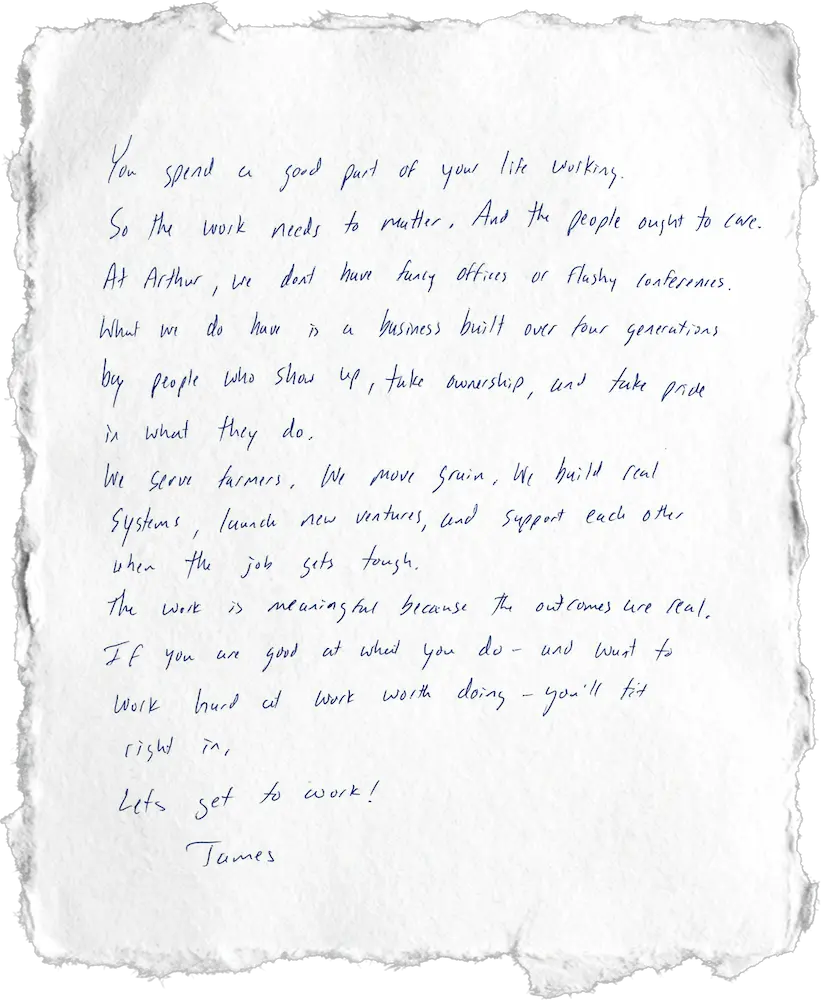 You spend a good part of your life working.
So the work needs to matter. And the people ought to care.
At Arthur, we dont have fancy offices or flashy conferences.
What we do have is a business built over four generations
by people who show up, take ownership, and take pride
in what they do.
We serve farmers. We move grain. We build real
systems, launch new ventures, and support each other
when the job gets tough.
The work is meaningful because the outcomes are real.
If you are good at what you do - and want to
work hard at work worth doing - you'll fit
right in.
Lets get to work!
James